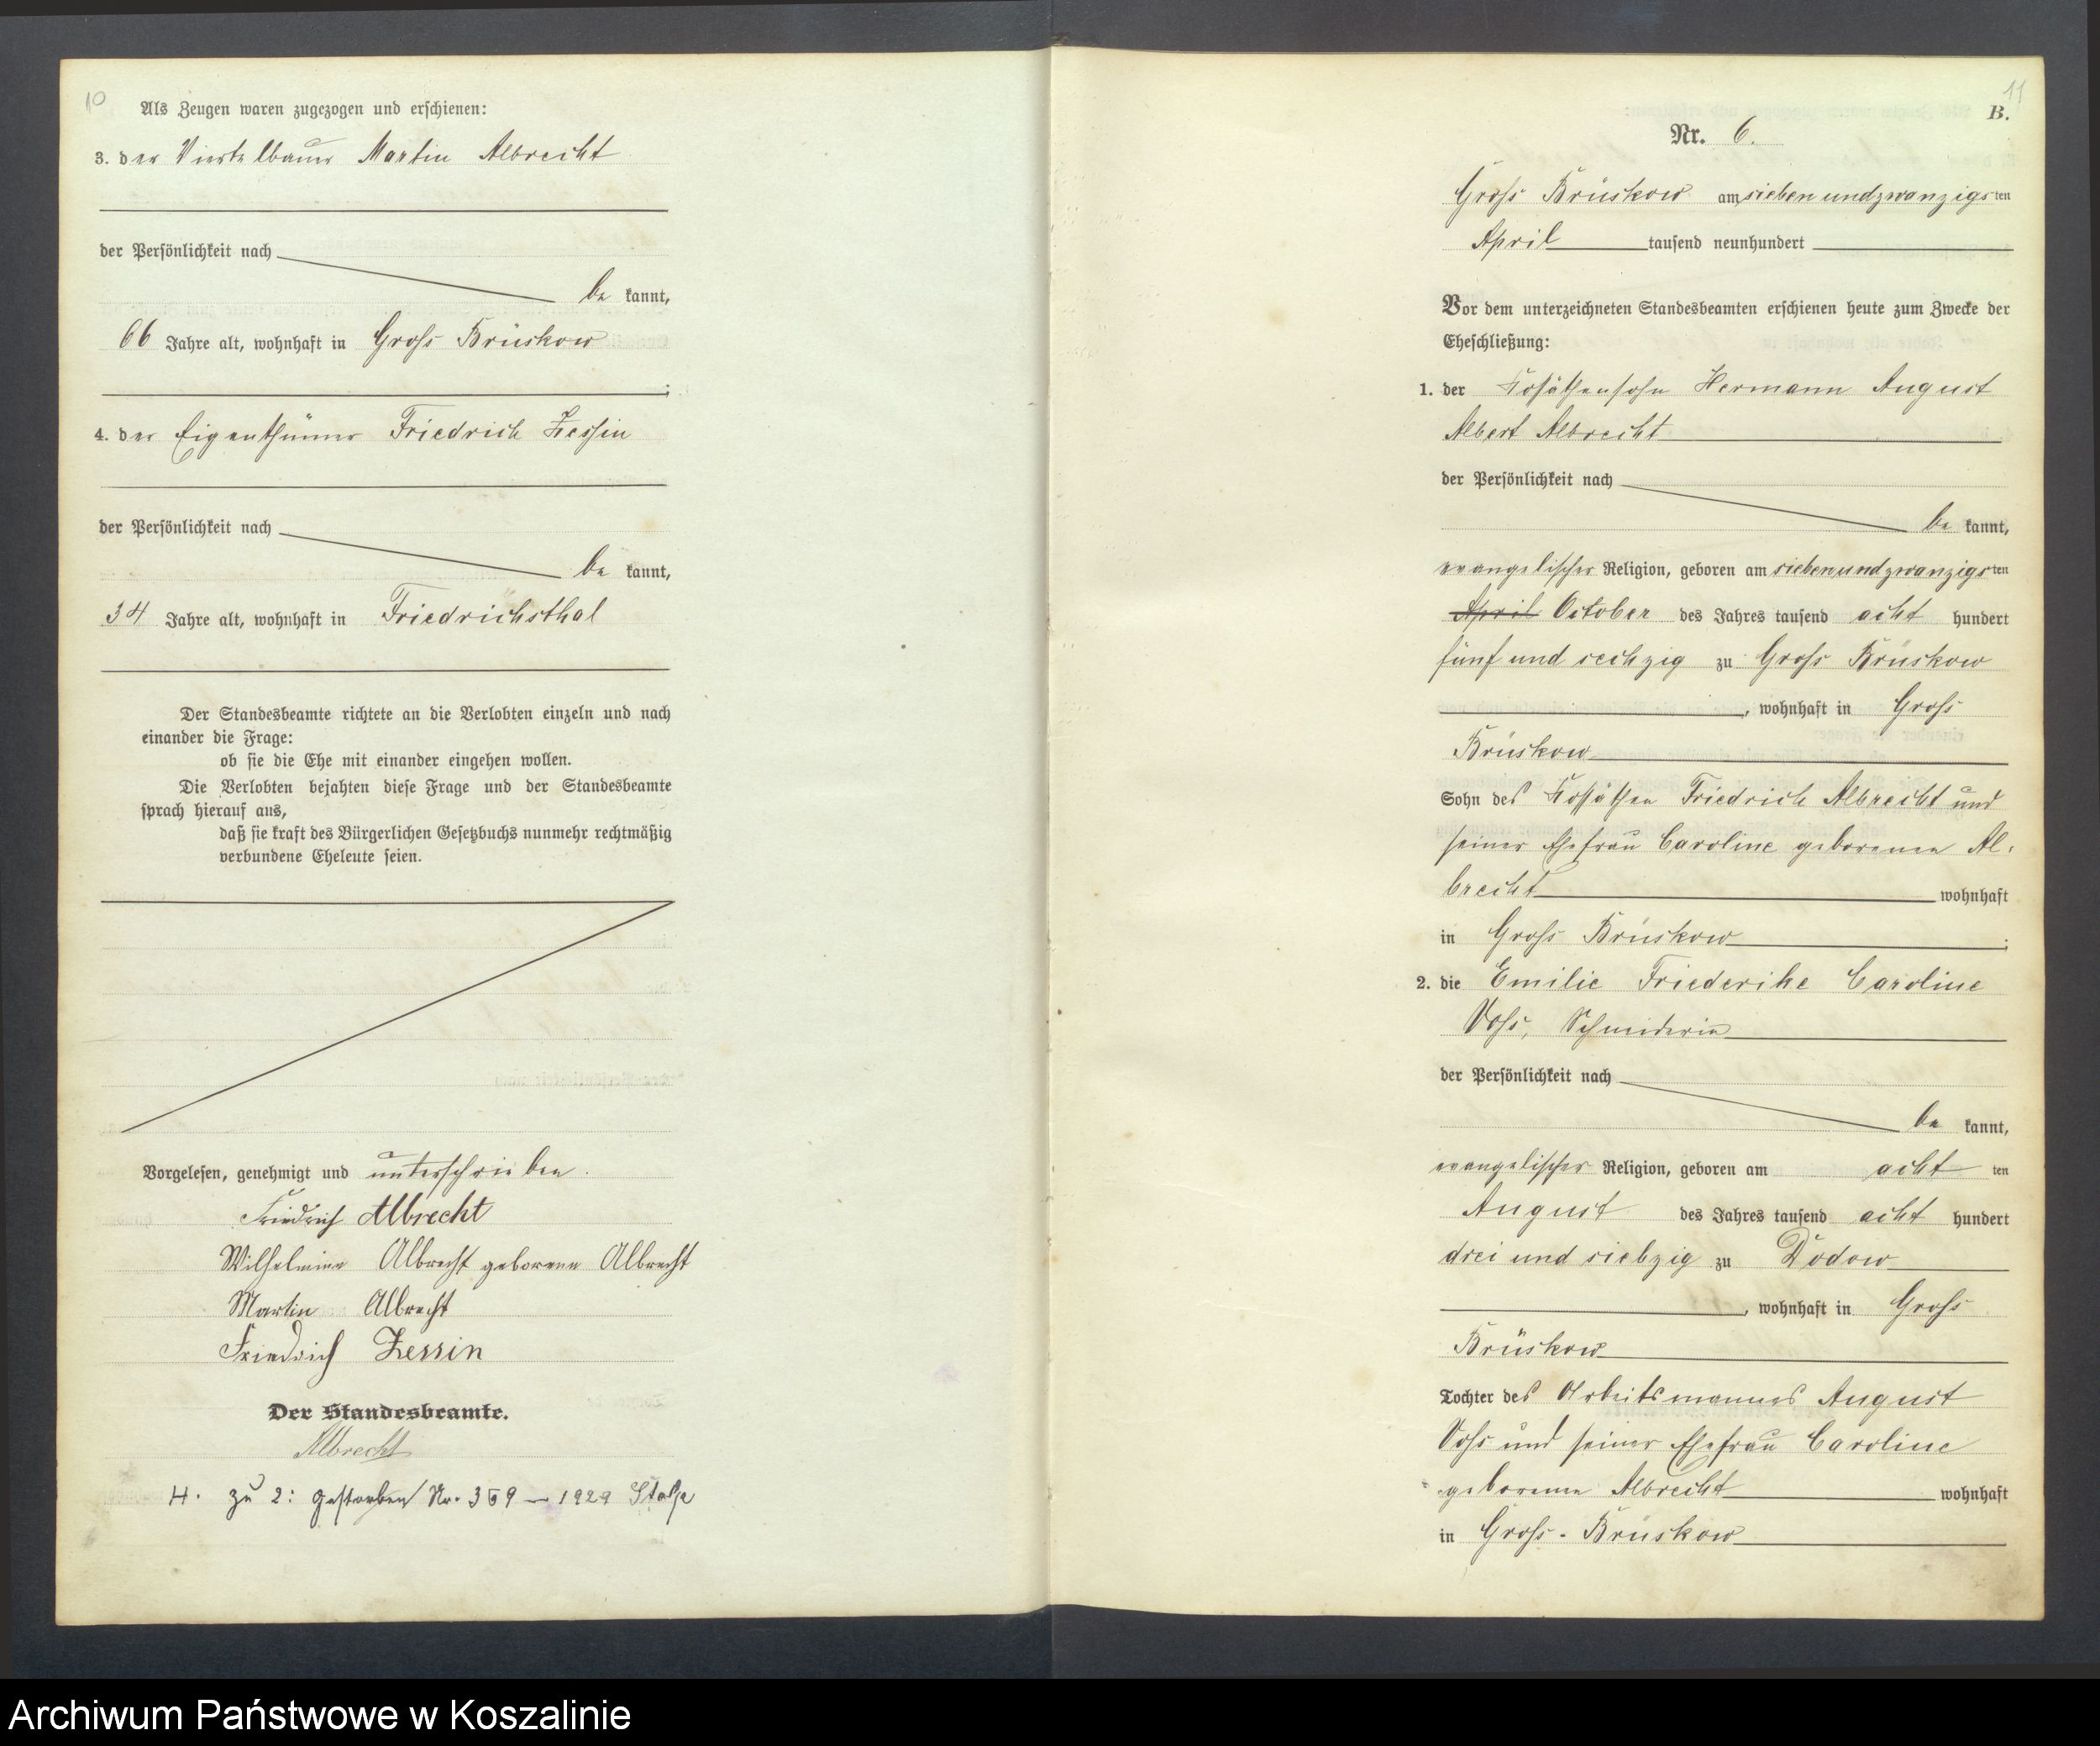 10
Als Zeugen waren zugezogen und erschienen:
3. der Viertelbauer Martin Albrecht
der Persönlichkeit nach
be kannt,
66 Jahre alt, wohnhaft in Gross Brüskow
;
4. der Eigenthümer Friedrich Zessin
der Persönlichkeit nach
be kannt,
34 Jahre alt, wohnhaft in Friedrichsthal
Der Standesbeamte richtete an die Verlobten einzeln und nach
einander die Frage:
ob sie die Ehe mit einander eingehen wollen.
Die Verlobten bejahten diese Frage und der Standesbeamte
sprach hierauf aus,
daß sie kraft des Bürgerlichen Gesetzbuchs nunmehr rechtmäßig
verbundene Eheleute seien.
Vorgelesen, genehmigt und unterschrieben.
Friedrich Albrecht
Wilhelmine Albrecht geborene Albrecht
Martin Albrecht
Friedrich Zessin
Der Standesbeamte.
Albrecht
H. zu 2: gestorben Nr. 369 – 1929 Stolp
11
B.
Nr. 6.
Gross Brüskow am siebenundzwanzigsten
April tausend neunhundert
Vor dem unterzeichneten Standesbeamten erschienen heute zum Zwecke der
Eheschließung:
1. der Kossäthensohn Hermann August
Albert Albrecht
der Persönlichkeit nach
be kannt,
evangelischer Religion, geboren am siebenundzwanzigsten
April October des Jahres tausend acht hundert
fünf und sechzig zu Gross Brüskow
, wohnhaft in Gross
Brüskow
Sohn des Kossäthen Friedrich Albrecht und
seiner Ehefrau Caroline geborenen Al-
brecht wohnhaft
in Gross Brüskow ;
2. die Emilie Friederike Caroline
Voss, Schneiderin
der Persönlichkeit nach
be kannt,
evangelischer Religion, geboren am acht ten
August des Jahres tausend acht hundert
drei und siebzig zu Dodow
, wohnhaft in Gross
Brüskow
Tochter des Arbeitsmannes August
Voss und seiner Ehefrau Caroline
geborenen Albrecht wohnhaft
in Gross-Brüskow
Archiwum Państwowe w Koszalinie